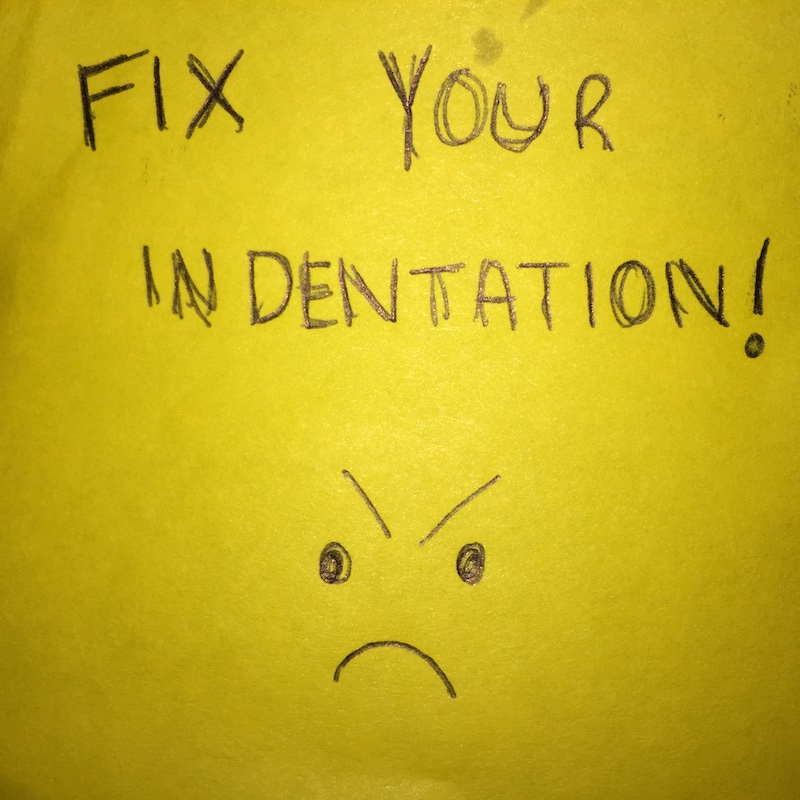 FIX YOUR
INDENTATION!